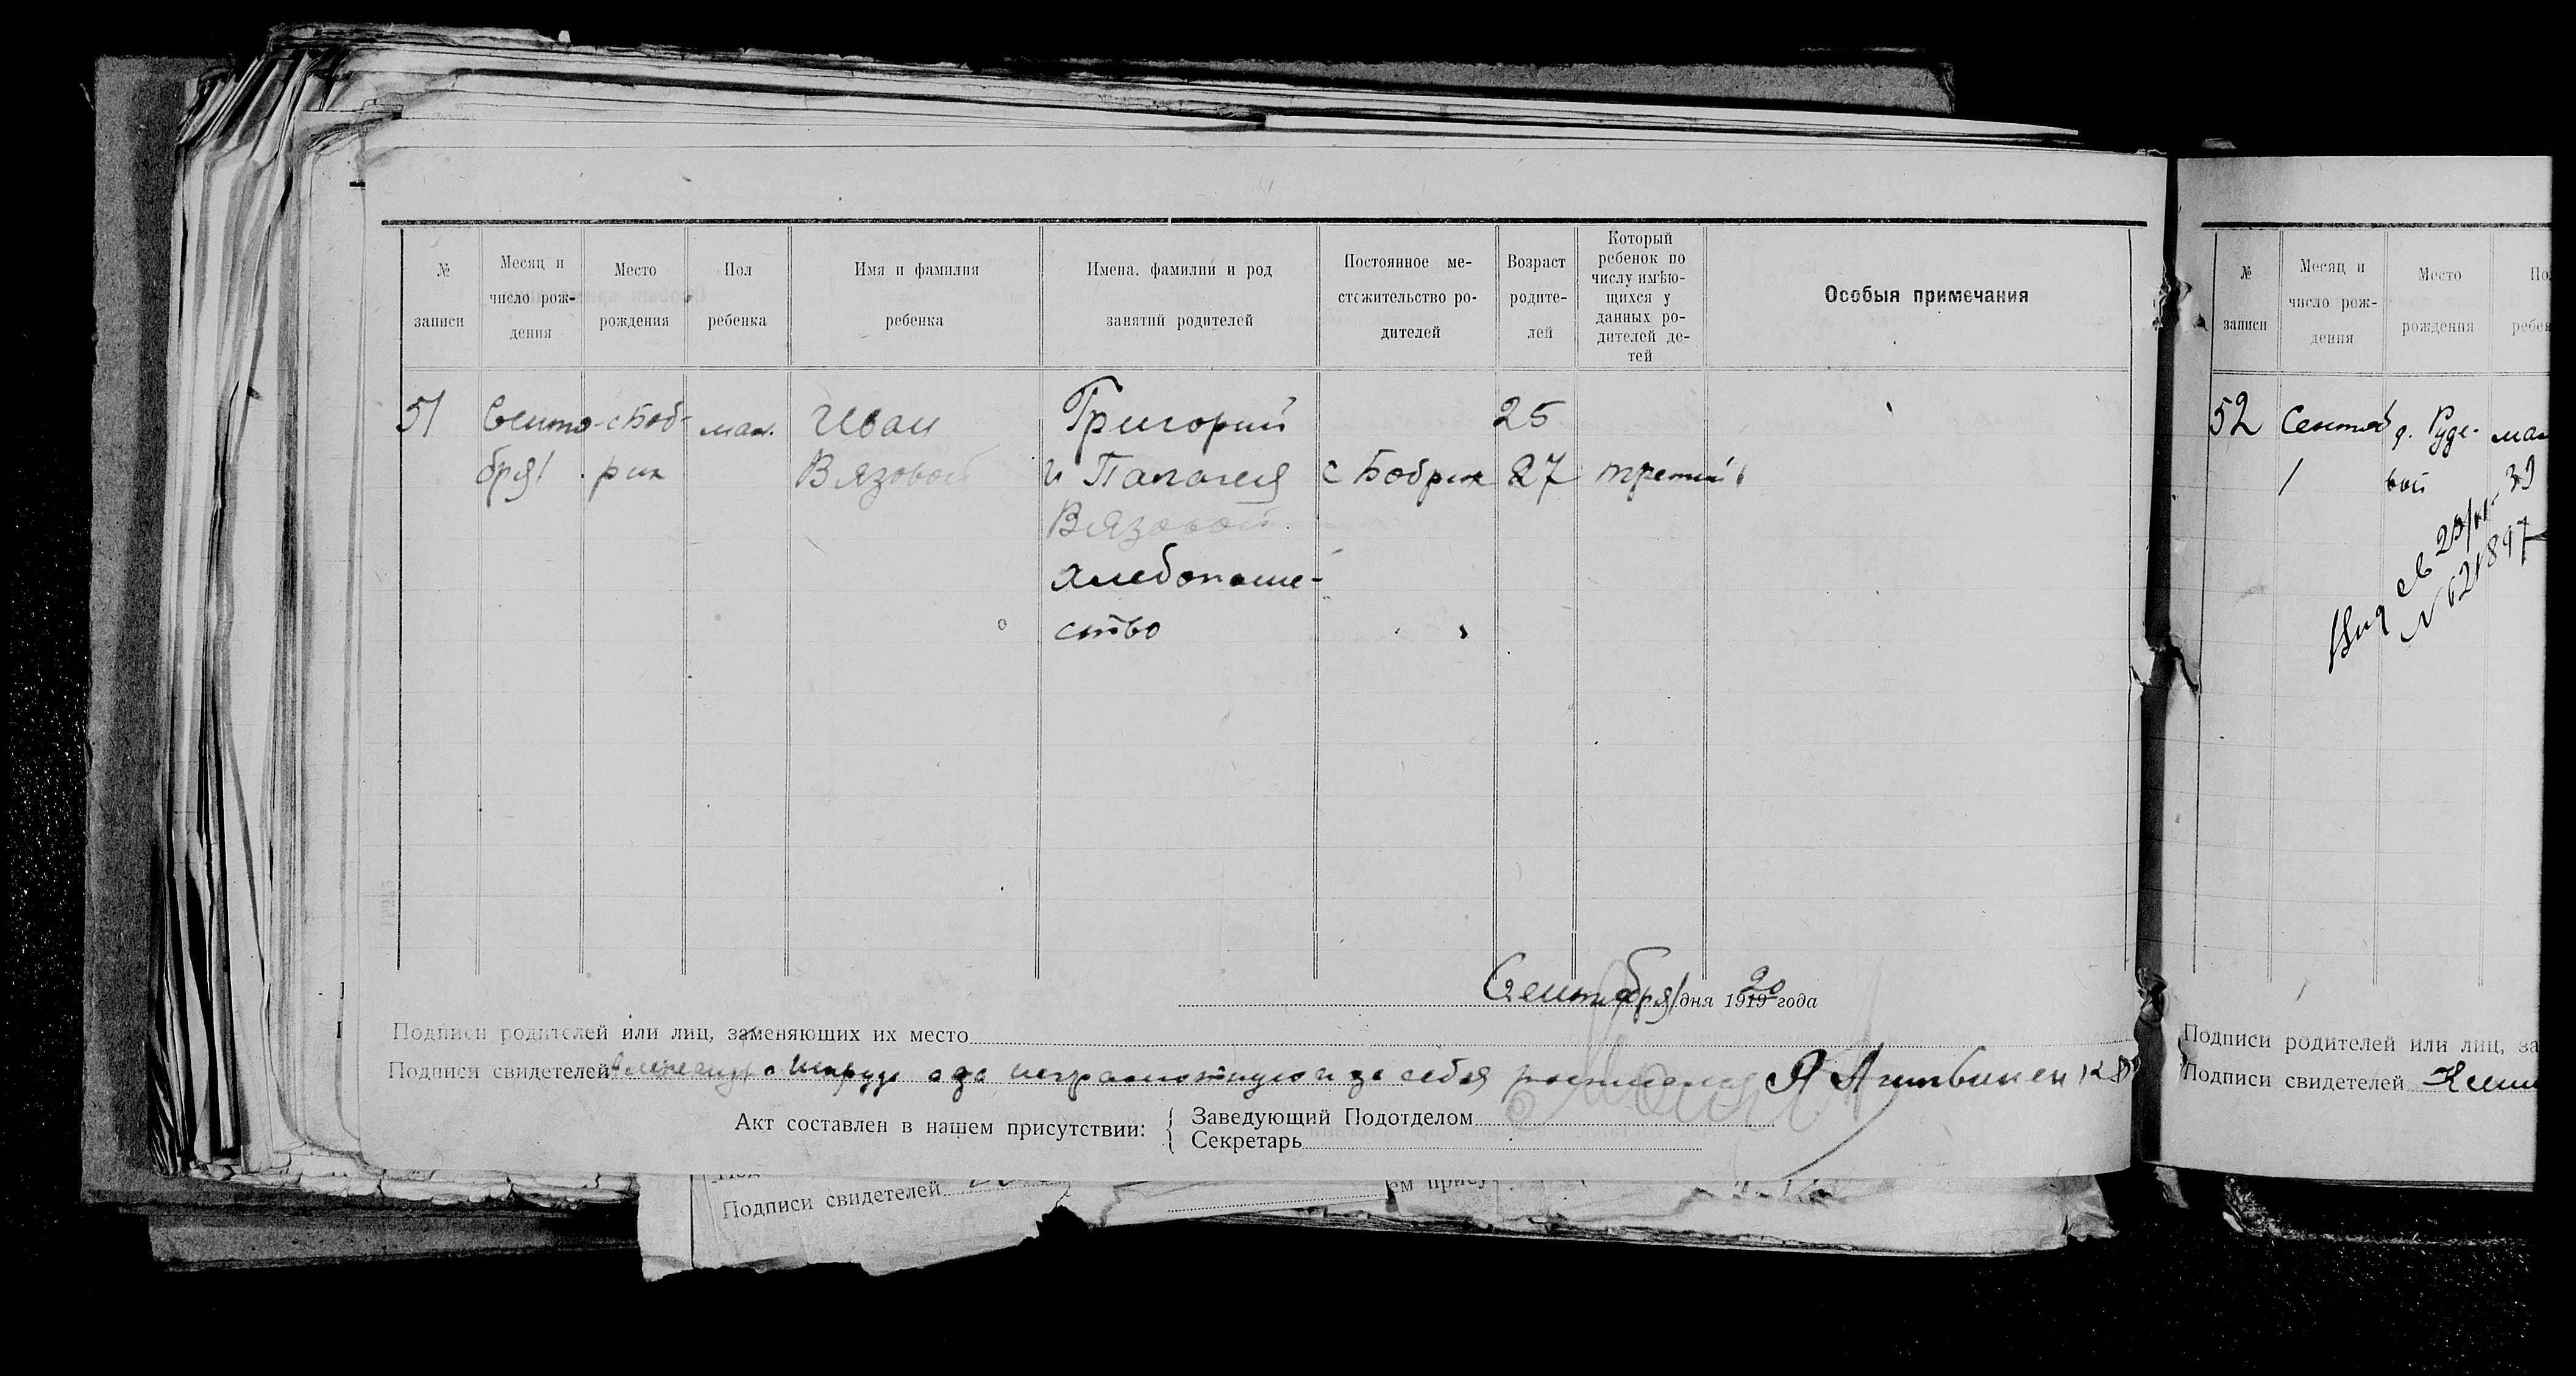 №
записи
Месяц и
число рож-
дения
Место
рождения
Пол
ребенка
Имя и фамилия
ребенка
Имена. фамилии и род
занятий родителей
Постоянное ме-
стожительство ро-
дителей
Возраст
родите-
лей
Который
ребенок по
числу имѣю-
щихся у
данных ро-
дителей де-
тей
Особыя примечания
51
Сентя-
бря 1
с Боб-
рик
маж.
Иван
Вязовой
Григорий
и Палагея
Вязовой
хлебопаше-
ство
с Бобрик
25
27
третий
Сентября 1 дня 1919 20 года
Подписи родителей или лиц, заменяющих их место
Подписи свидетелей а за неграмотную и за себя
Акт составлен в нашем присутствии:
Заведующий Подотделом
Секретарь
Подписи свидетелей
№
записи
Месяц и
число рож-
дения
Место
рождения
По
ребен
52
Сентяб
1
д. Руде-
вой
маж
Подписи родителей или лиц, за
Подписи свидетелей